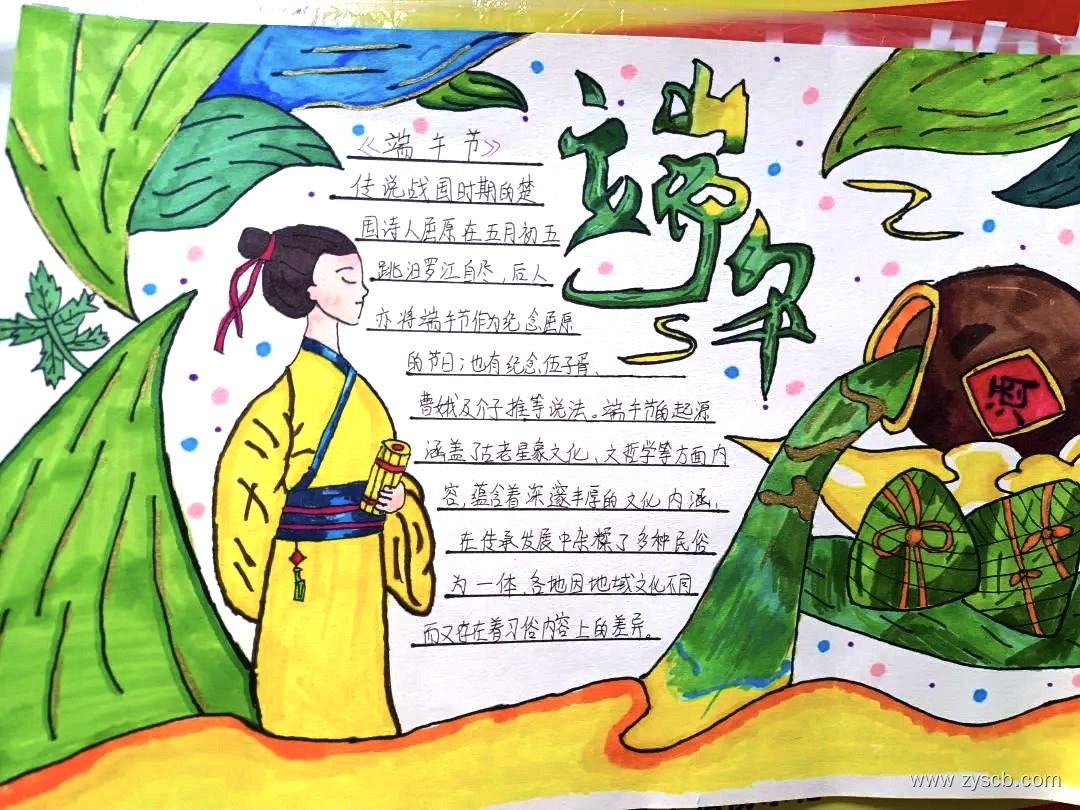 端午
《端午节》
传说战国时期的楚
国诗人屈原在五月初五
跳汨罗江自尽，后人
亦将端午节作为纪念屈原
的节日；也有纪念伍子胥、
曹娥及介子推等说法。端午节的起源
涵盖了古老星象文化、文哲学等方面内
容，蕴含着深邃丰厚的文化内涵，
在传承发展中杂糅了多种民俗
为一体，各地因地域文化不同
而又存在着习俗内容上的差异。
酒
www.zyscb.com